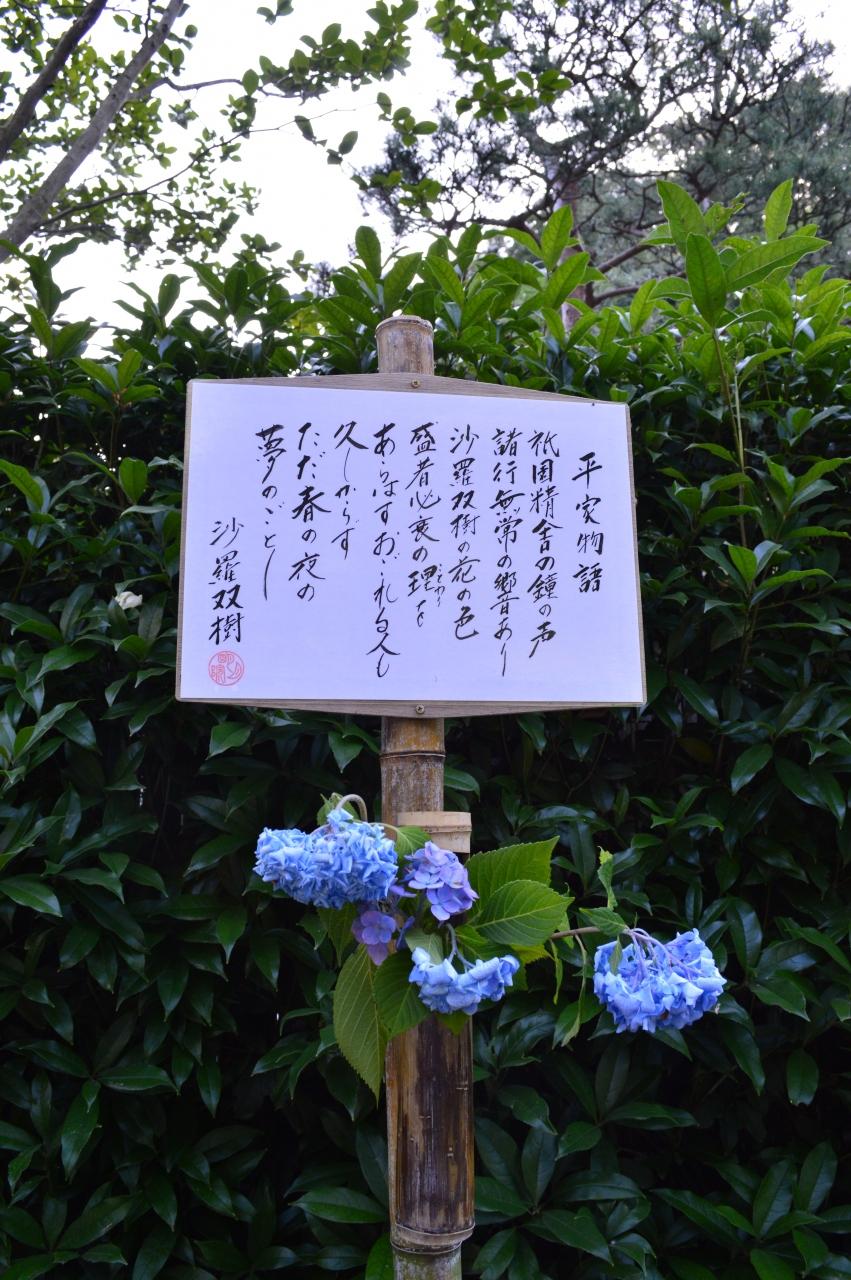 平家物語
祇園精舎の鐘の声
諸行無常の響きあり
沙羅双樹の花の色
盛者必衰の理を
ことわり
あらはすおごれる人も
久しからず
ただ春の夜の
夢のごとし
沙羅双樹